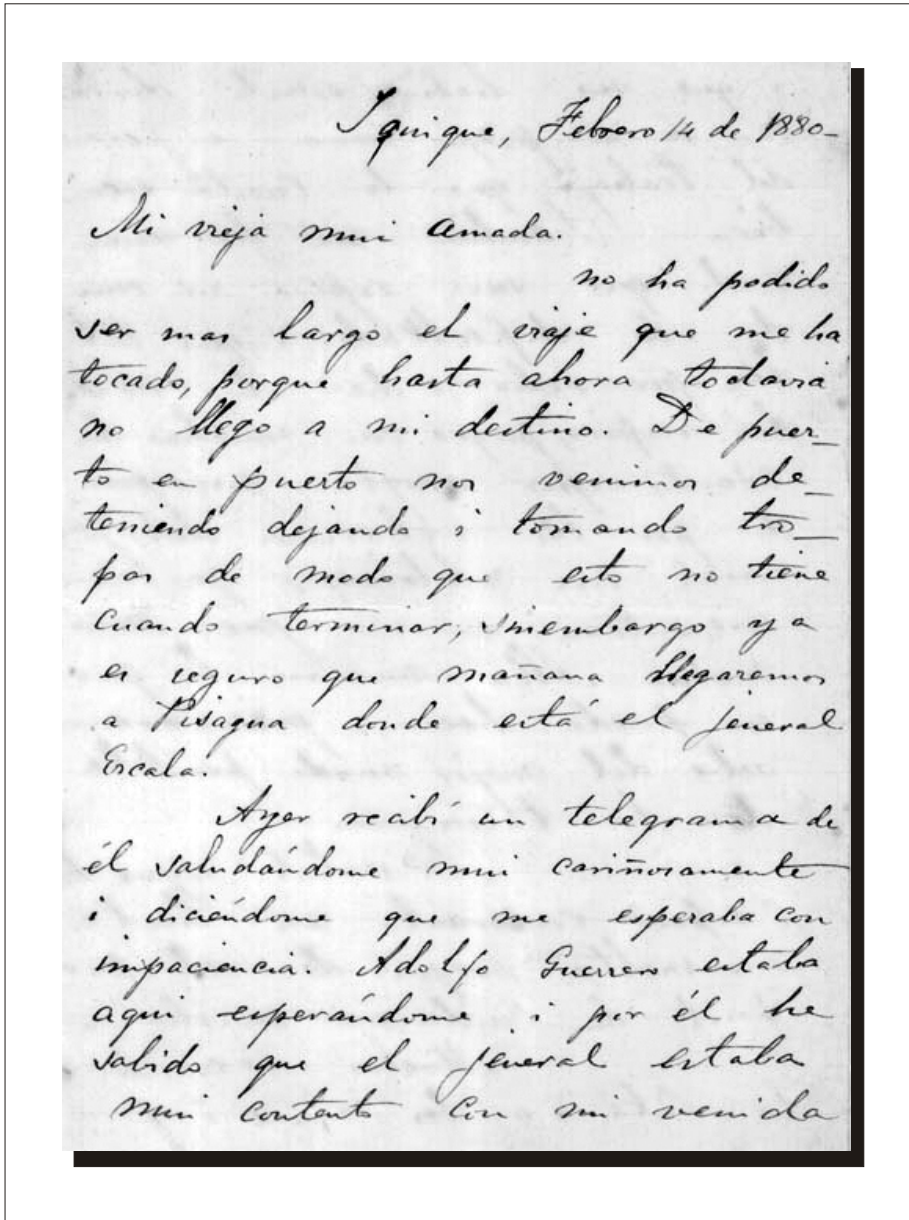 Iquique, Febrero 14 de 1880-
Mi vieja mui amada.
no ha podido
ser mas largo el viaje que me ha
tocado, porque hasta ahora todavia
no llego a mi destino. De puer_
to en puerto nos venimos de_
teniendo dejando i tomando tro_
pas de modo que esto no tiene
cuando terminar; sinembargo ya
es seguro que mañana llegaremos
a Pisagua donde está el jeneral
Escala.
Ayer recibí un telegrama de
él saludándome mui cariñosamente
i diciéndome que me esperaba con
impaciencia. Adolfo Guerrero estaba
aqui esperándome i por él he
sabido que el jeneral estaba
mui contento con mi venida